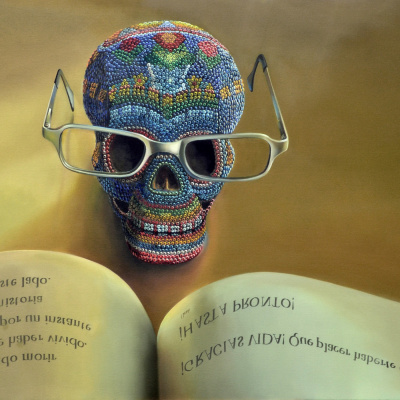 do morir
e haber vivido.
por un instante
historia
ste lado.
¡GRACIAS VIDA! Que placer haberte
¡HASTA PRONTO!